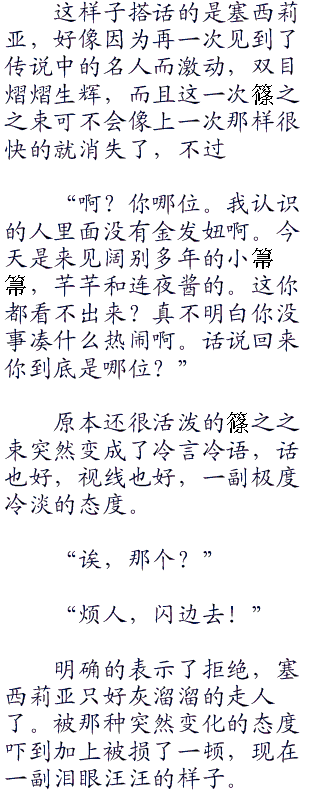 这样子搭话的是塞西莉
亚，好像因为再一次见到了
传说中的名人而激动，双目
熠熠生辉，而且这一次篠之
之束可不会像上一次那样很
快的就消失了，不过
“啊？你哪位。我认识
的人里面没有金发妞啊。今
天是来见阔别多年的小箒
箒，芊芊和连夜酱的。这你
都看不出来？真不明白你没
事凑什么热闹啊。话说回来
你到底是哪位？”
原本还很活泼的篠之之
束突然变成了冷言冷语，话
也好，视线也好，一副极度
冷淡的态度。
“诶，那个？”
“烦人，闪边去！”
明确的表示了拒绝，塞
西莉亚只好灰溜溜的走人
了。被那种突然变化的态度
吓到加上被损了一顿，现在
一副泪眼汪汪的样子。